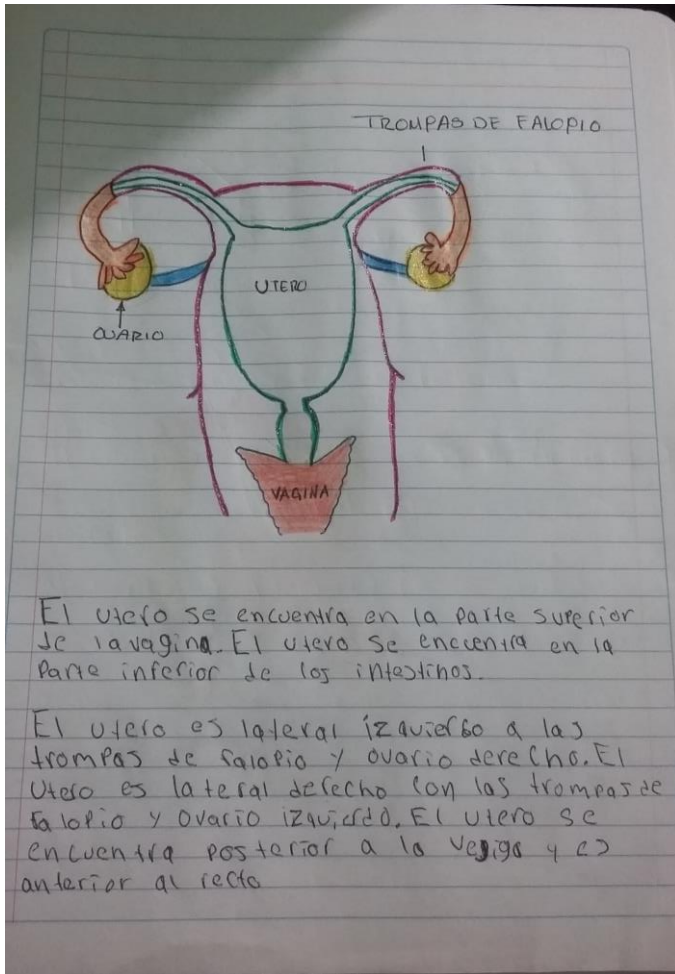 TROMPAS DE FALOPIO
UTERO
OVARIO
VAGINA
El utero se encuentra en la parte superior
de la vagina. El utero se encuentra en la
parte inferior de los intestinos.
El utero es lateral izquierdo a las
trompas de falopio y ovario derecho. El
utero es lateral derecho con las trompas de
falopio y ovario izquierdo. El utero se
encuentra posterior a la vegiga y es
anterior al recto